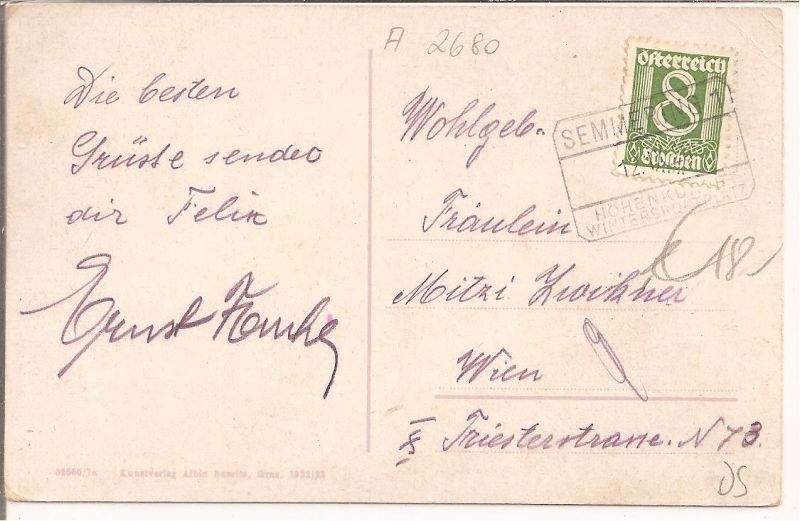 A 2680
Die besten
Grüsse sendet
dir Felix
Ernst
Österreich
8
Groschen
SEMMER
12.
HÖHENKU
WINTERSPORTPLATZ
Wohlgeb.
Fräulein
Mitzi Zwikner
Wien
X Triesterstrasse. N 73.
€ 18,-
Kunstverlag Albin Sussitz, Graz, 1922/23
DS